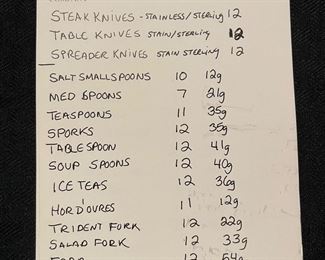 STEAK KNIVES - STAINLESS/STERLING 12
TABLE KNIVES STAIN/STERLING 12
SPREADER KNIVES STAIN STERLING 12
SALT SMALL SPOONS 10 12g
MED SPOONS 7 21g
TEASPOONS 11 35g
SPORKS 12 35g
TABLESPOON 12 41g
SOUP SPOONS 12 40g
ICE TEAS 12 36g
HORD'OVRES 11 12g
TRIDENT FORK 12 22g
SALAD FORK 12 33g
FORK 12 54g